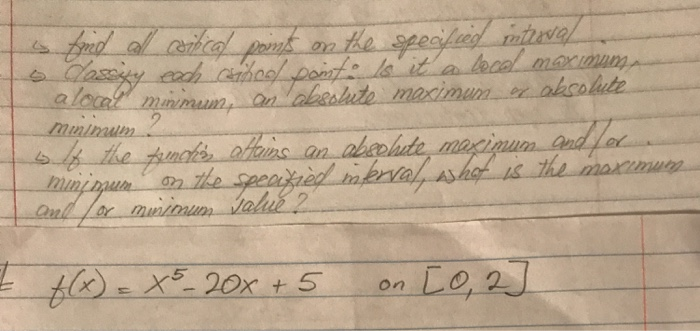 ↳ find all critical points on the specified interval.
↳ Classify each critical point: Is it a local maximum,
a local minimum, an absolute maximum or absolute
minimum?
↳ If the function attains an absolute maximum and/or
minimum on the specified interval, what is the maximum
and/or minimum value?
f(x) = x⁵ - 20x + 5 on [0, 2]